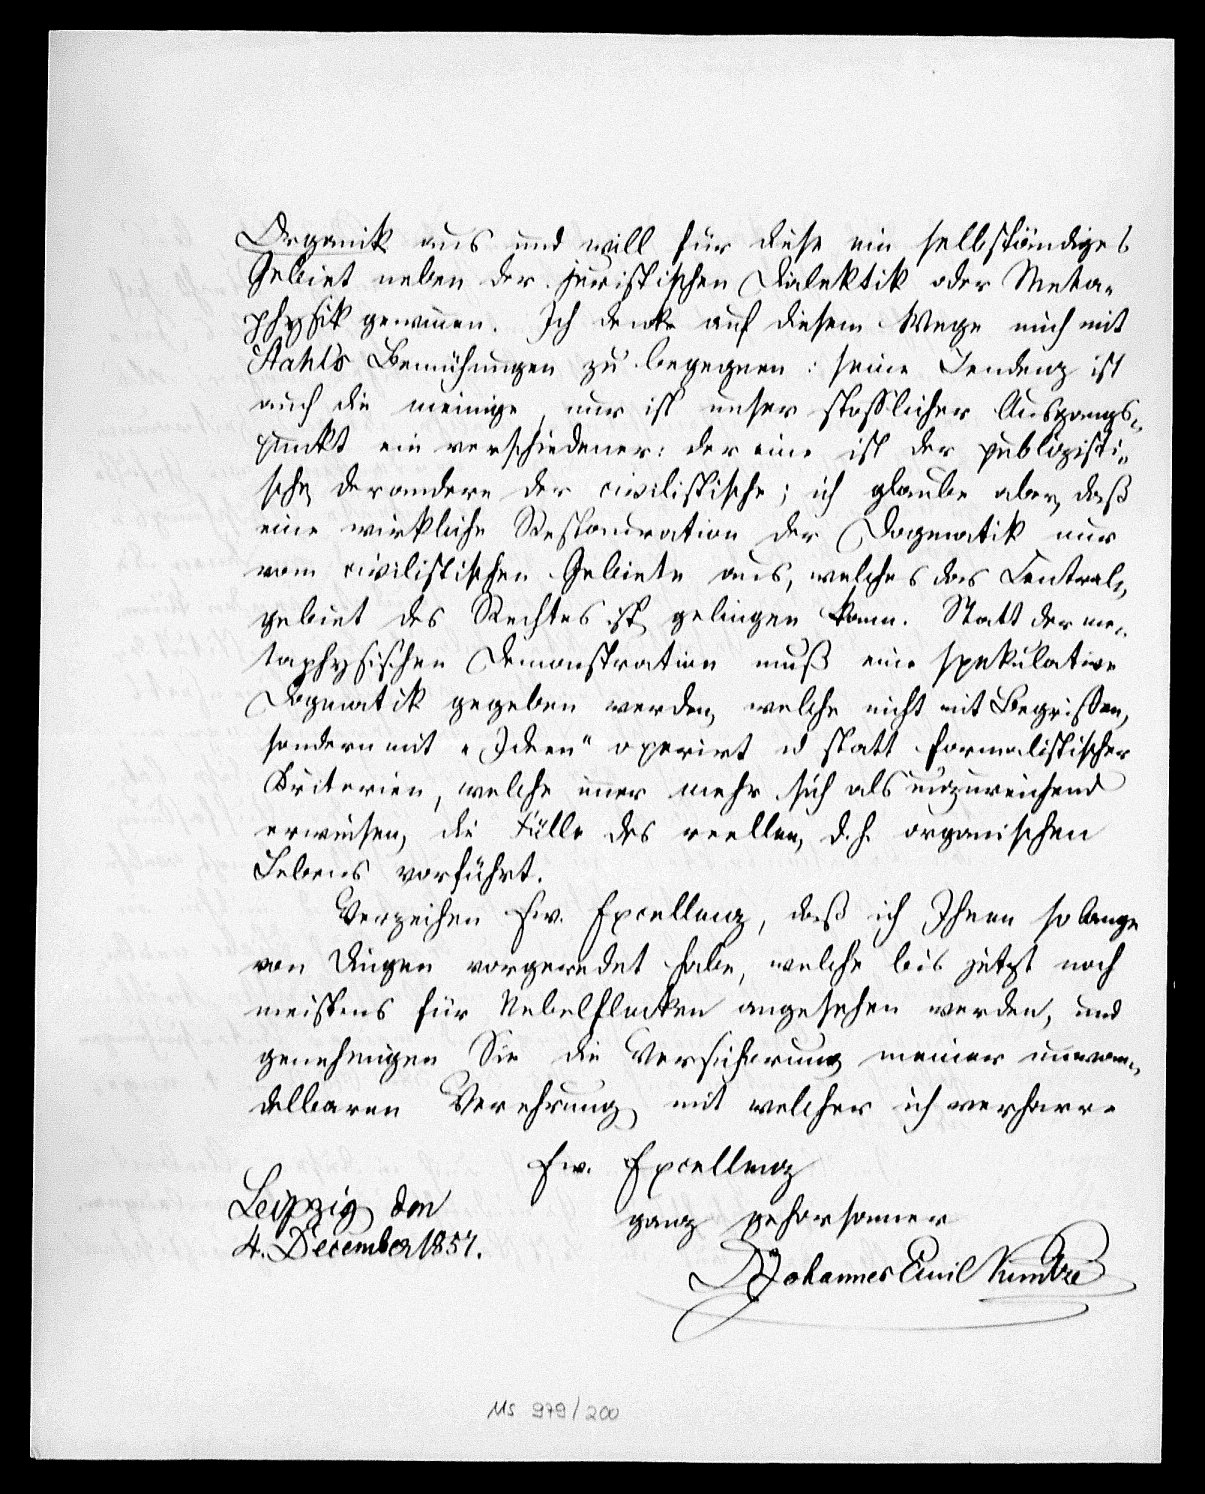 Organik aus und will für diese ein selbständiges
Gebiet neben der juristischen Dialektik oder Meta-
physik gewinnen. Ich denke auf diesem Wege mich mit
Stahl's Bemühungen zu begegnen: seine Tendenz ist
auch die meinige, nur ist unser stofflicher Ausgangs-
punkt ein verschiedener: der eine ist der publizisti-
sche, der andere der civilistische; ich glaube aber, daß
eine wirkliche Restauration der Dogmatik nur
vom civilistischen Gebiete aus, welches das Central-
gebiet des Rechtes ist, gelingen kann. Statt der me-
taphysischen Demonstration muß eine spekulative
Dogmatik gegeben werden, welche nicht mit Begriffen,
sondern mit „Ideen“ operirt u statt formalistischer
Kriterien, welche immer mehr sich als unzureichend
erweisen, die Fülle des reellen, d.h. organischen
Lebens vorführt.
Verzeihen Ew. Excellenz, daß ich Ihnen so lange
von Dingen vorgeredet habe, welche bis jetzt noch
meistens für Nebelflecken angesehen werden, und
genehmigen Sie die Versicherung meiner unwan-
delbaren Verehrung, mit welcher ich verharre
Ew. Excellenz
ganz gehorsamer
Leipzig, den
4. December 1857.
D. Johannes Emil Kuntze
Ms 979/200